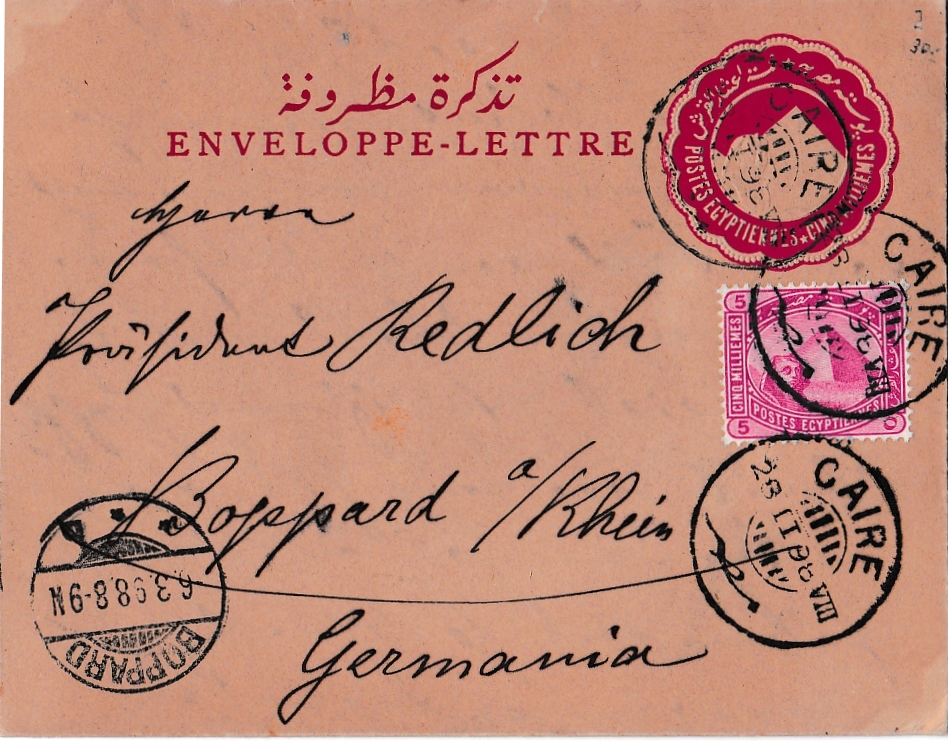 3
30.-
تذكرة مظروفة
ENVELOPPE-LETTRE
POSTES EGYPTIENNES ★ CINQ MILLIEMES
CAIRE
Herrn
CAIRE
5
CINQ MILLIEMES
POSTES EGYPTIENNES
5
Präsident Redlich
Boppard a/Rhein
CAIRE
28 II 98
BOPPARD
6.3.98 8-9N
Germania